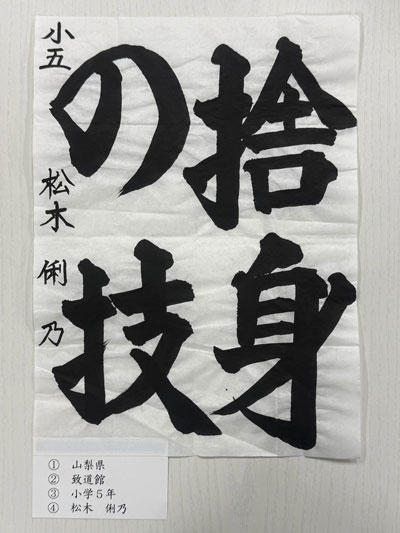 捨身
の技
小五 松木 俐乃
① 山梨県
② 致道館
③ 小学5年
④ 松木 俐乃